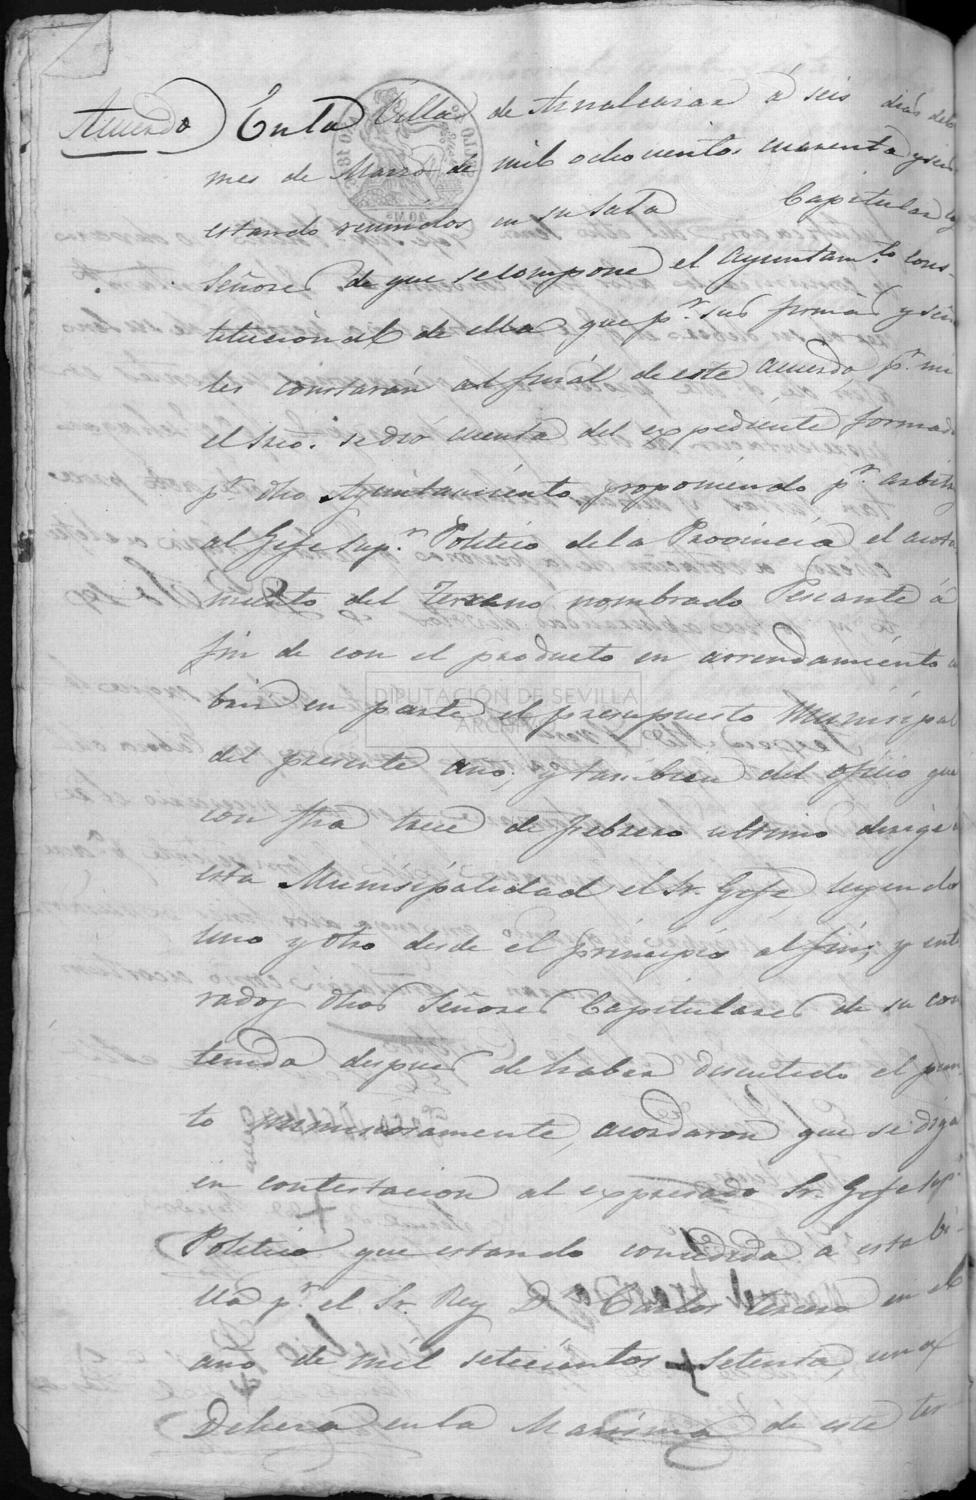 Acuerdo) En la Villa de Aznalcazar á seis dias del
mes de Marzo de mil ochocientos cuarenta y seis
estando reunidos en su Sala Capitular los
Señores de que se compone el Ayuntam.to Cons-
titucional de ella, que p.r sus firmas y seña
les constarán al finál de este acuerdo, p.r mi
el Srio. se dió cuenta del expediente formado
p.r dho Ayuntamiento, proponiendo p.r arbitr
al Gefe Sup.r Politico de la Provincia el acota
miento del Terreno nombrado Pescante á
fin de con el producto en arrendamiento cu
brir en parte el presupuesto Municipal
del presente año; y tambien del oficio que
con fha trece de febrero ultimo dirige á
esta Municipalidad el Sr. Gefe leyendo
uno y otro desde el principio al fin; y ente
rados dhos Señores Capitulares de su con
tenido despues de haber discutido el pun
to minuciosamente, acordaron que se diga
en contestacion al expresado Sr. Gefe Sup.r
Politico que estando concedida á esta Vi-
lla p.r el Sr. Rey D.n Carlos tercero en el
año de mil setecientos setenta, una
Dehesa en la Marisma de este ter
DIPUTACIÓN DE SEVILLA
ARCHIVO
40 Ms